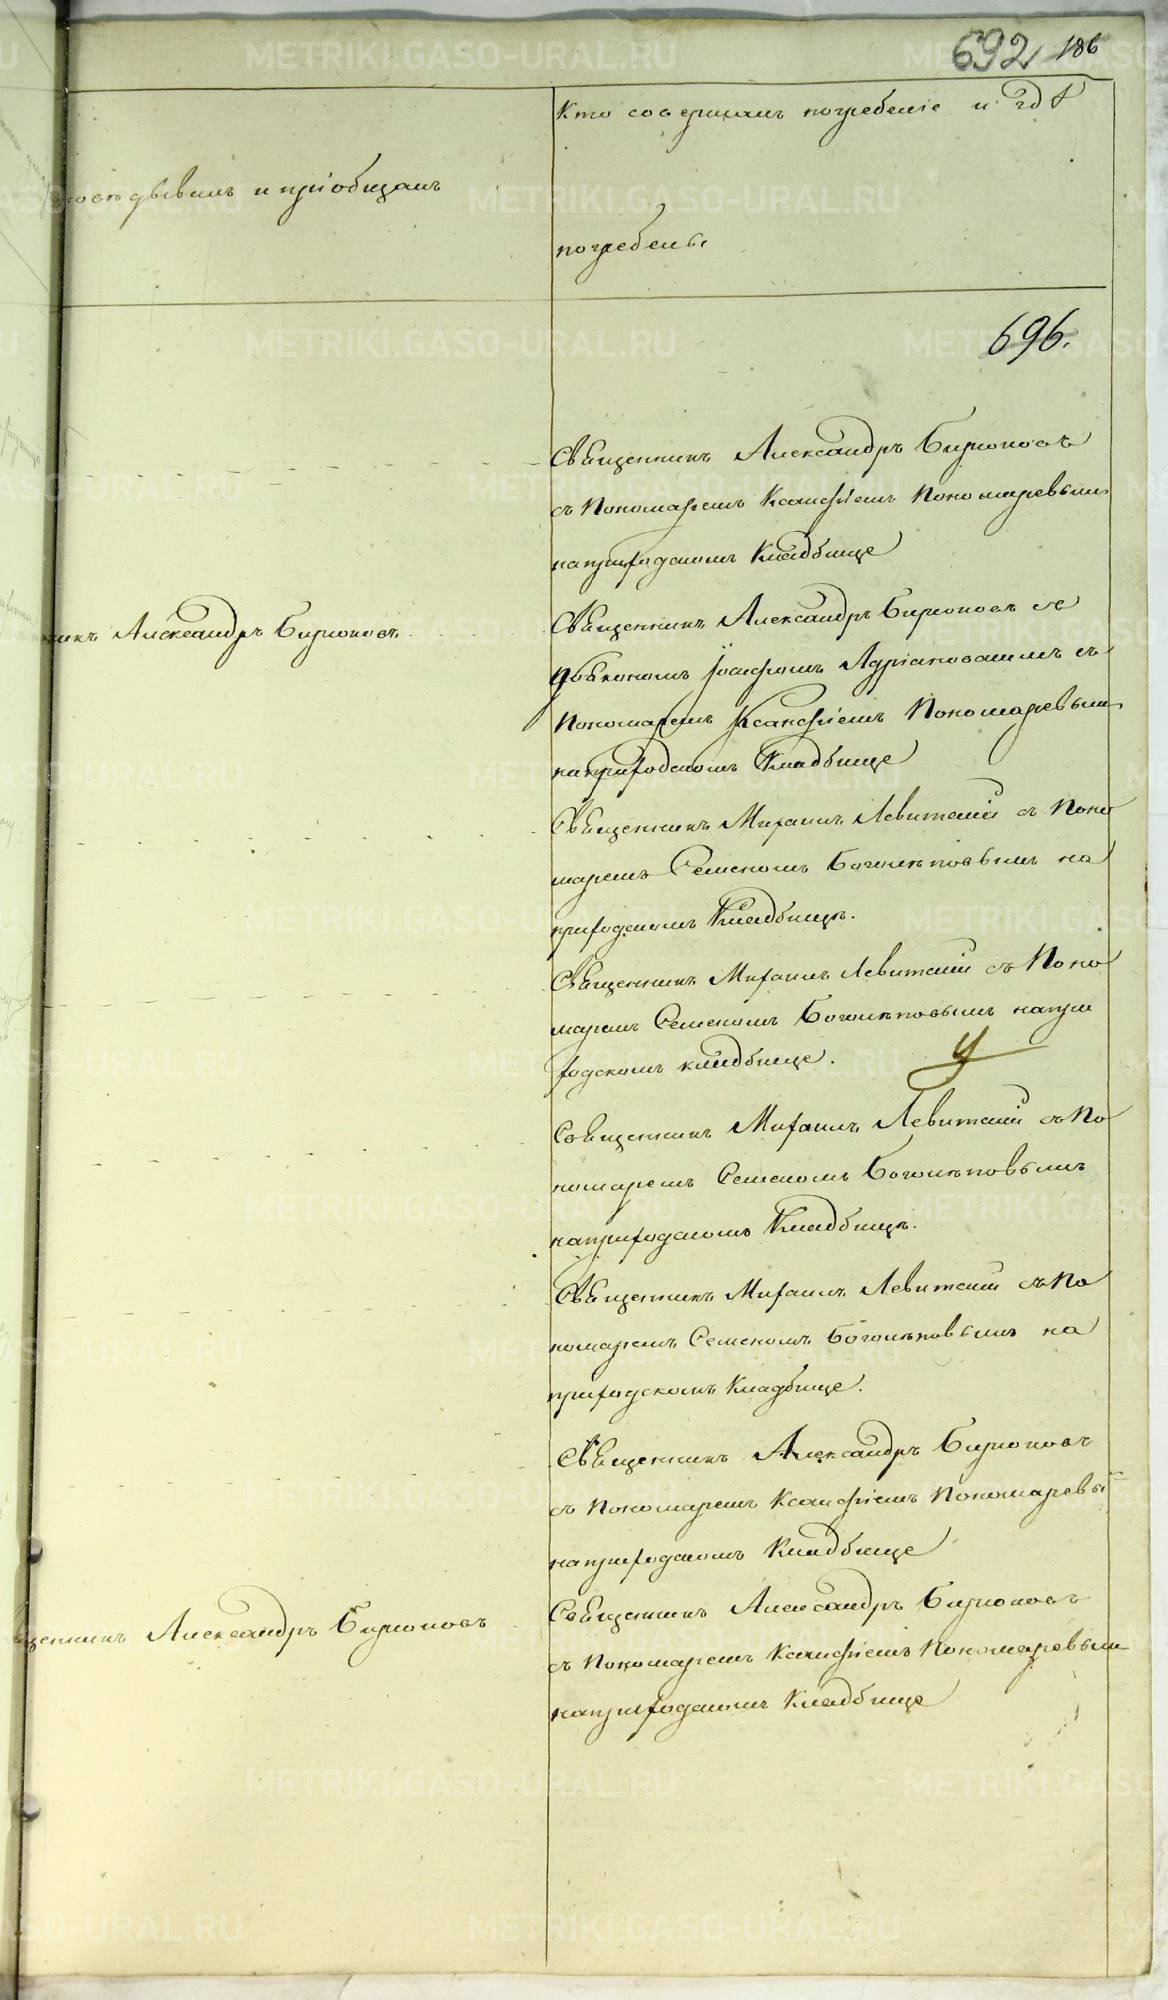 692 186
Кто совершалъ погребеніе и гдѣ
исповѣдывалъ и пріобщалъ
погребены
696.
Священникъ Александръ Бирюковъ
съ Пономаремъ Ксанфіемъ Пономаревымъ
на приходскомъ Кладбище
Священникъ Александръ Бирюковъ со
никъ Александръ Бирюковъ
дьякономъ Іоасафомъ Адріановскимъ съ
Пономаремъ Ксанфіемъ Пономаревымъ
на приходскомъ Кладбище
Священникъ Михаилъ Левитскій съ Поно
маремъ Семеномъ Боголѣповымъ на
приходскомъ Кладбищѣ.
Священникъ Михаилъ Левитскій съ Поно
маремъ Семеномъ Боголѣповымъ на при
ходскомъ кладбище.
Священникъ Михаилъ Левитскій съ По
номаремъ Семеномъ Боголѣповымъ
на приходскомъ Кладбищѣ.
Священникъ Михаилъ Левитскій съ По
номаремъ Семеномъ Боголѣповымъ на
приходскомъ Кладбище.
Священникъ Александръ Бирюковъ
съ Пономаремъ Ксанфіемъ Пономаревы
на приходскомъ Кладбище
Священникъ Александръ Бирюковъ
щенникъ Александръ Бирюковъ
съ Пономаремъ Ксанфіемъ Пономаревымъ
на приходскомъ Кладбище
METRIKI.GASO-URAL.RU